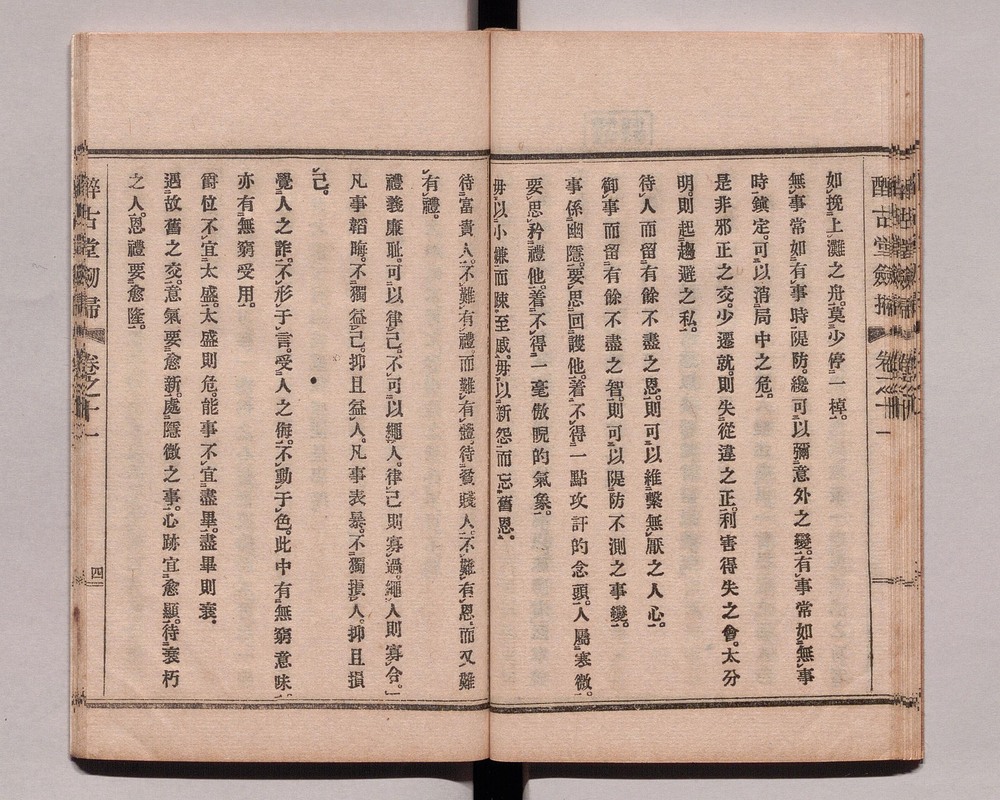 醉古堂劍掃　卷之十一
如挽上灘之舟。莫少停一棹。
無事常如有事時隄防。纔可以彌意外之變。有事常如無事
時鎮定。可以消局中之危。
是非邪正之交。少遷就。則失從違之正。利害得失之會。太分
明。則起趨避之私。
待人而留有餘不盡之恩。則可以維繫無厭之人心。
御事而留有餘不盡之智。則可以隄防不測之事變。
事係幽隱。要思回護他。着不得一點攻訐的念頭。人屬寒微。
要思矜禮他。着不得一毫傲睨的氣象。
毋以小嫌而疎至戚。毋以新怨而忘舊恩。
待富貴人。不難有禮而難有體。待貧賤人。不難有恩。而又難
有禮。
禮義廉恥。可以律己。不可以繩人。律己則寡過。繩人則寡合。
凡事韜晦。不獨益己。抑且益人。凡事表暴。不獨損人。抑且損
己。
覺人之詐。不形于言。受人之侮。不動于色。此中有無窮意味。
亦有無窮受用。
爵位不宜太盛。太盛則危。能事不宜盡畢。盡畢則衰。
遇故舊之交。意氣要愈新。處隱微之事。心跡宜愈顯。待衰朽
之人。恩禮要愈隆。
醉古堂劍掃　卷之十一　四